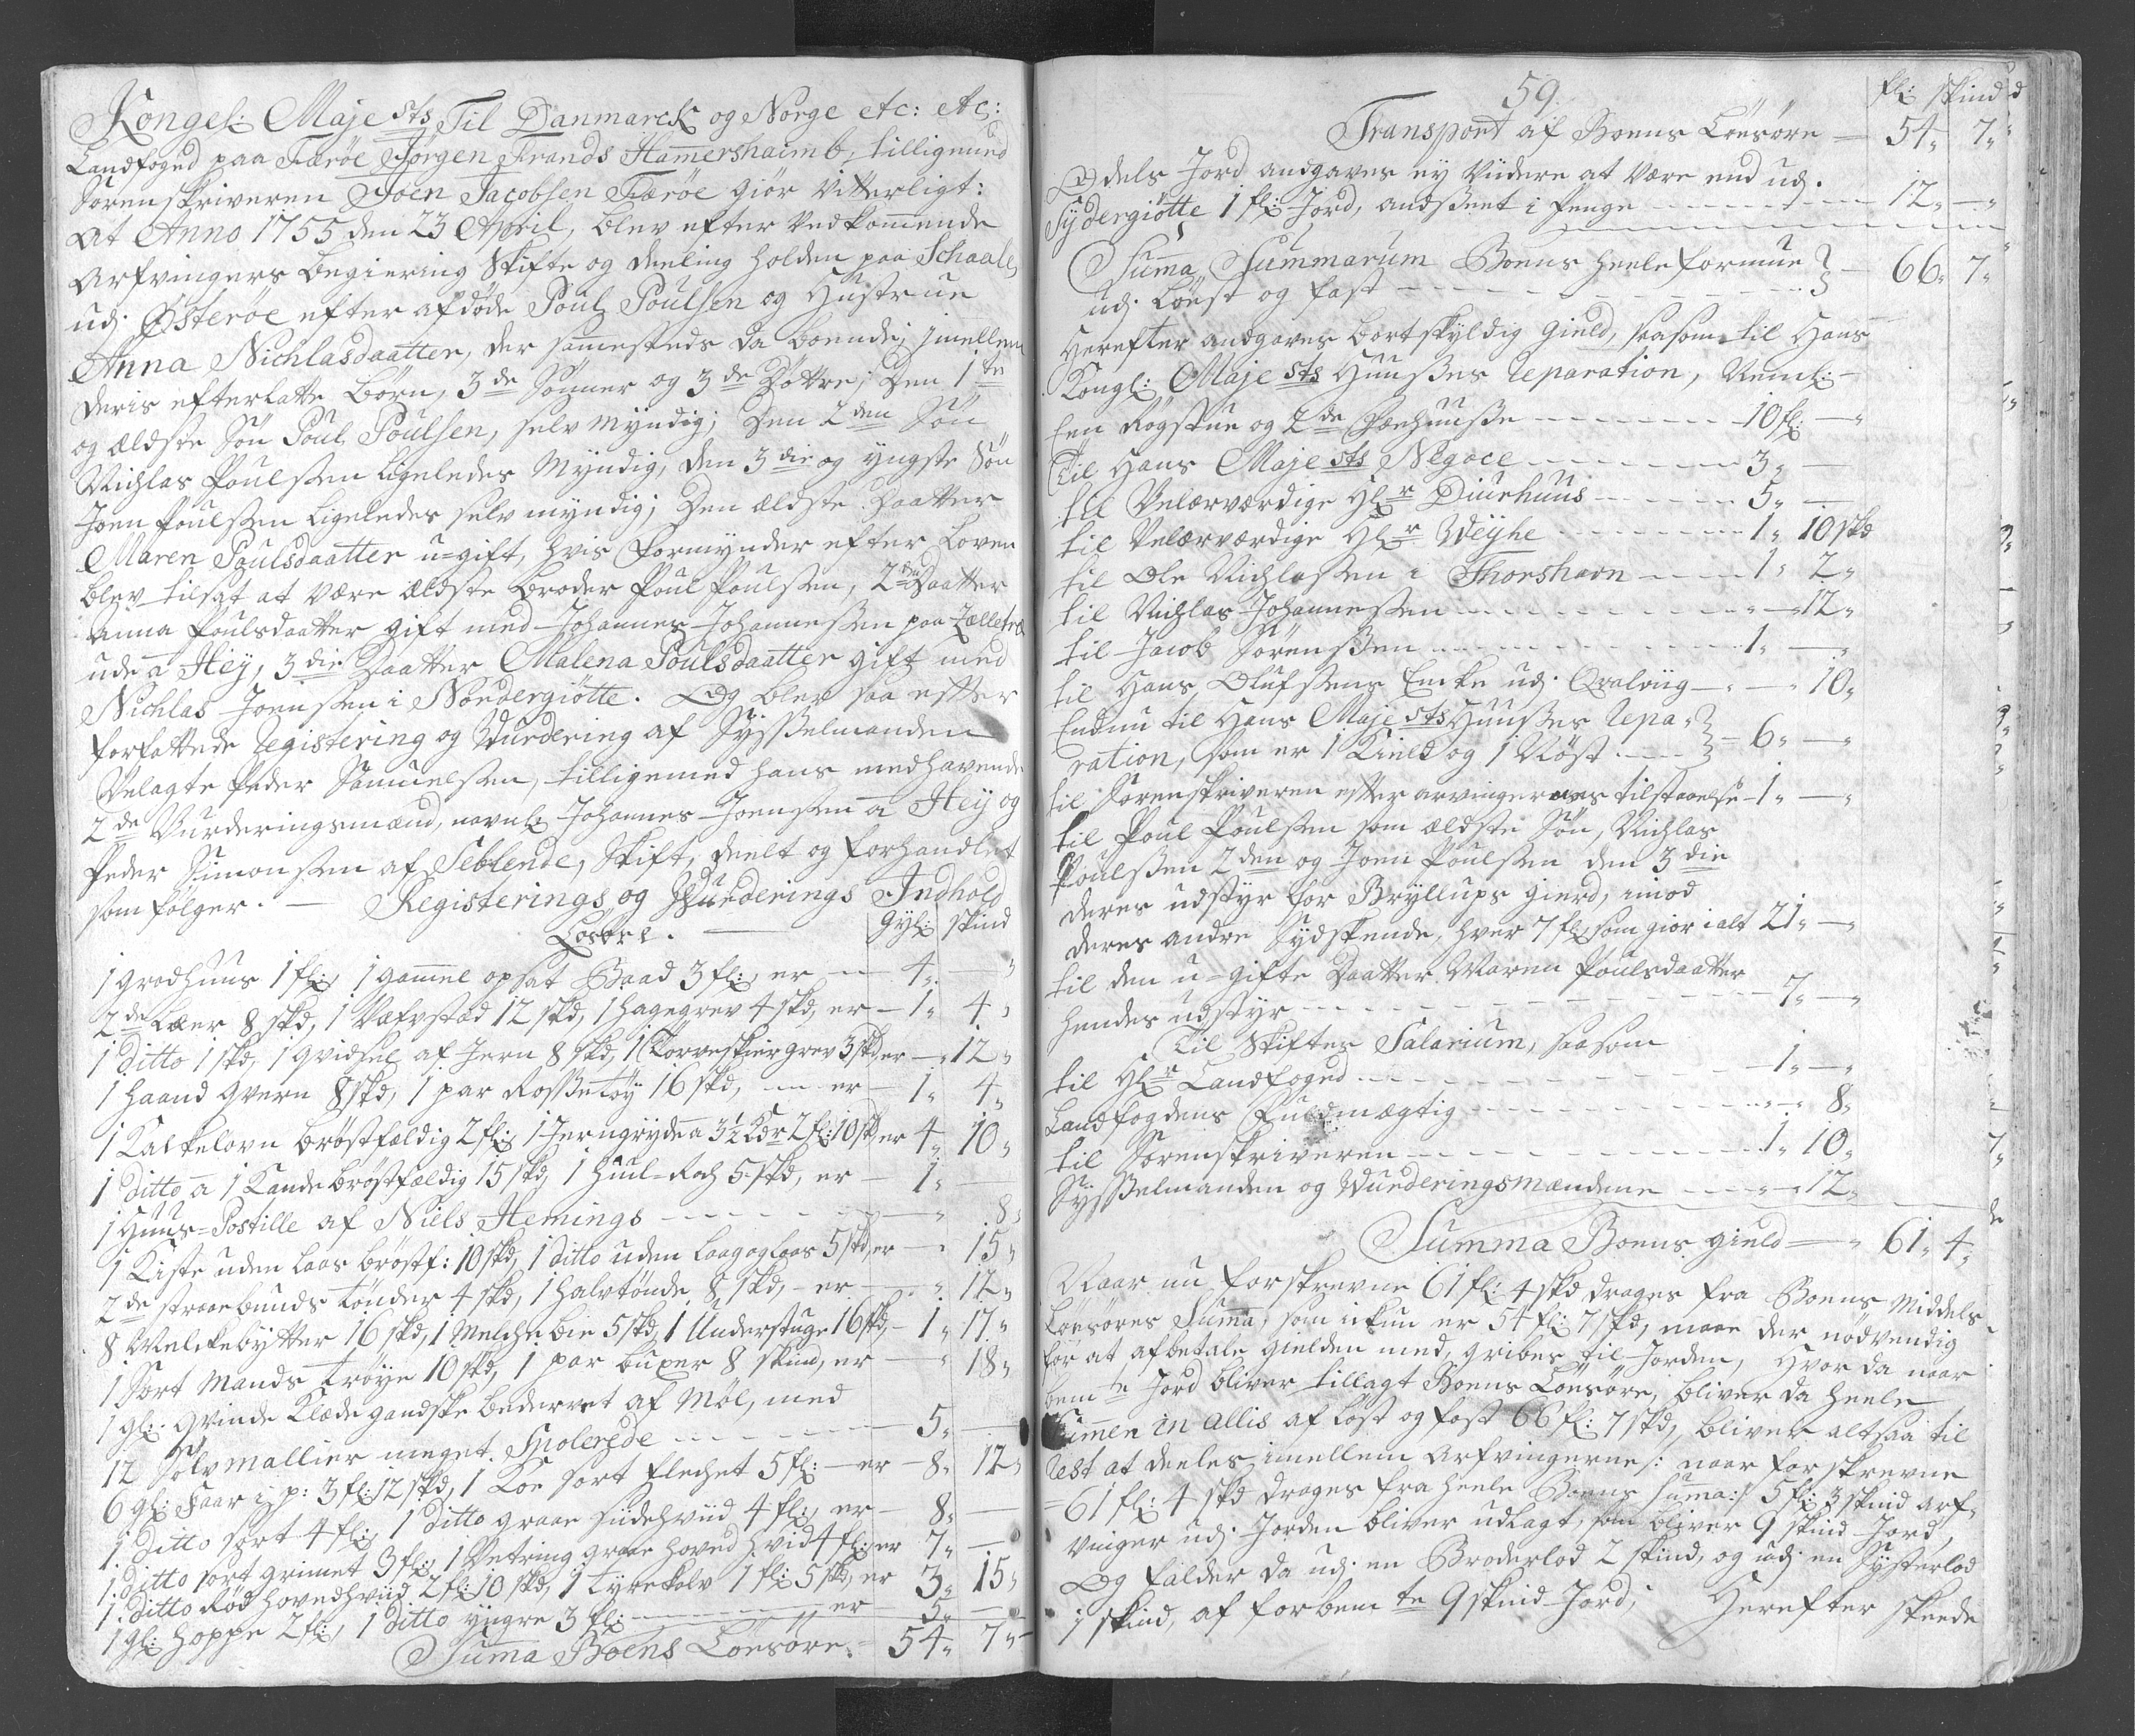 Kongel: Majests Til Danmarck og Norge etc: etc:
Landfoged paa Færøe Jørgen Frands Hamershaimb, tilligemed
Sorenskriveren Joen Jacobsen Færøe giør vitterligt:
At Anno 1755 den 23 April, blev efter vedkomende
Arfvingers begiering Skifte og deeling holden paa Schaale,
udj Østerøe efter afdøde Poul Poulsen og Hustrue
Anna Nichlasdaatter, der sammesteds da boende, imellem
deris efterlatte børn, 3de Sønner og 3de Døttre; Den 1te
og ældste Søn Poul Poulsen, selv myndig; Den 2den Søn
Nichlas Poulssen ligeledes Myndig, den 3die og yngste Søn
Joen Poulssen ligeledes selv myndig; Den ældste Daatter
Maren Poulsdaatter u-gift, hvis Formynder efter Loven
blev tilsat at være ældste broder Poul Poulssen, 2den Daatter
Anna Poulsdaatter gift med Johannes Johannessen paa Zelletræ
ude a Hey, 3die Daatter Malena Poulsdaatter gift med
Nichlas Joenssen i Nordergiøtte. Og blev saa efter
forfattede Registering og Wurdering af Sysselmanden
Velagte Peder Samuelssen, tilligemed hans medhavende
2de Vurderingsmænd, navnl: Johannes Joenssen a Hey og
Peder Simonssen af Seblende, Skift, deelt og forhandlet
som følger. — Registerings og Wurderings Indhold
Løsøre. — Gyl: skind
1 grodhuus 1 fl:, 1 gammel opsat Baad 3 fl:, er — 4„ — „
2de Læer 8 skd, 1 Vefvstad 12 skd, 1 hagegrev 4 skd, er — 1„ 4„
1 ditto 1 skd, 1 gvidsel af Jern 8 skd, 1 Torveskier grev 3 skd er — „ 12„
1 haand qvern 8 skd, 1 par Rossetøy 16 skd, — er — 1„ 4„
1 Kalkelovn brøstfældig 2 fl:, 1 Jerngryde a 3½ Kdr 2 fl: 10 skd er 4„ 10„
1 ditto a 1 Kande brøstfældig 15 skd, 1 Hiul-Rok 5 skd, er — 1„ —
1 Huus-Postille af Niels Hemings — „ 8„
1 Kiste uden laas brøstf: 10 skd, 1 ditto uden laag og laas 5 skd, er — „ 15„
2de straaebunds tønder 4 skd, 1 halvtønde 8 skd, — er — „ 12„
8 Melckebytter 16 skd, 1 Melche bie 5 skd, 1 Understuge 16 skd, — 1„ 17„
1 Sort Mands trøye 10 skd, 1 par buxer 8 skind, er — „ 18„
1 gl: qvinde Klæde gandske bedervet af Møl, med
12 Sølvmallier meget Spolerede — 5„ —
6 gl: Faar i p: 3 fl: 12 skd, 1 Koe sort flechet 5 fl: — er — 8„ 12„
1 ditto sort 4 fl:, 1 ditto graae siidehviid 4 fl:, er — 8„ —
1 ditto sort grimet 3 fl:, 1 Vetring graae hoved hvid 4 fl:, er 7„ —
1 ditto Rød hovedhviid 2 fl: 10 skd, 1 tyrekalv 1 fl: 5 skd, er 3„ 15„
1 gl: hoppe 2 fl:, 1 ditto yngre 3 fl: — er 5„ —
Suma Boens Løesøre. 54„ 7„
59.
fl: skind
Transport af Boens Løesøre — 54„ 7„
Odels Jord andgaves ey viidere at være end udj
Sydergiøtte 1 fl: Jord, andsseet i penge — 12„ — „
Suma Summarum Boens heele formue
udj Løest og fast — 66„ 7„
Herefter andgaves bortskyldig gield, saasom til Hans
Kongl: Majests Huusses Reparation, Neml:
een Røgstue og 2de Fæehuusse — 10 fl: — „
Til Hans Majests Negoce — 3„ —
til Velærværdige Hlr Diurhuus — 5„ —
til Velærværdige Hlr Weyhe — 1„ 10 skd
til Ole Nichlassen i Thorshavn — 1„ 2„
til Nichlas Johannessen — „ 12„
til Jacob Sørenssen — 1„ — „
til Hans Olufssens Encke udj Qvalviig — „ 10„
Endnu til Hans Majests Huusses Repa-
ration, som er 1 Kield og 1 Nøst — 6„ — „
til Sorenskriveren efter arvingernes tilstaaelse — 1„ — „
til Poul Poulssen som ældste Søn, Nichlas
Poulssen 2den og Joen Poulssen den 3die
deres udstyr for Bryllups gierd, imod
deres andre Sydskende, hver 7 fl: som giør ialt 21„ — „
til den u-gifte Daatter Maren Poulsdaatter
hendes udstyr — 7„ — „
Til Skiftes Salarium, saasom
til Hlr Landfoged — 1„ — „
Landfogdens Fuldmægtig — „ 8„
til Sorenskriveren — 1„ 10„
Sysselmanden og Wurderingsmændene — „ 12„
Summa Boens gield — 61„ 4„
Naar nu forskrevne 61 fl: 4 skd drages fra Boens Middels
Løesøres Suma, som ickun er 54 fl: 7 skd, maae der nødvendig
for at afbetale gielden med, gribes til Jorden, hvor da naar
bemte Jord bliver tillagt Boens Løesøre, bliver da heele
Sumen in allis af løst og fast 66 fl: 7 skd, bliver altsaa til
Rest at deeles imellem Arfvingerne /: naar forskrevne
61 fl: 4 skd drages fra heele Boens Suma :/ 5 fl: 3 skind Arf-
vinger udj Jorden bliver udlagt, som bliver 9 skind Jord,
Og falder da udj en Broderlod 2 skind, og udj en Systerlod
1 skind, af forbemte 9 skind Jord; Herefter skeede